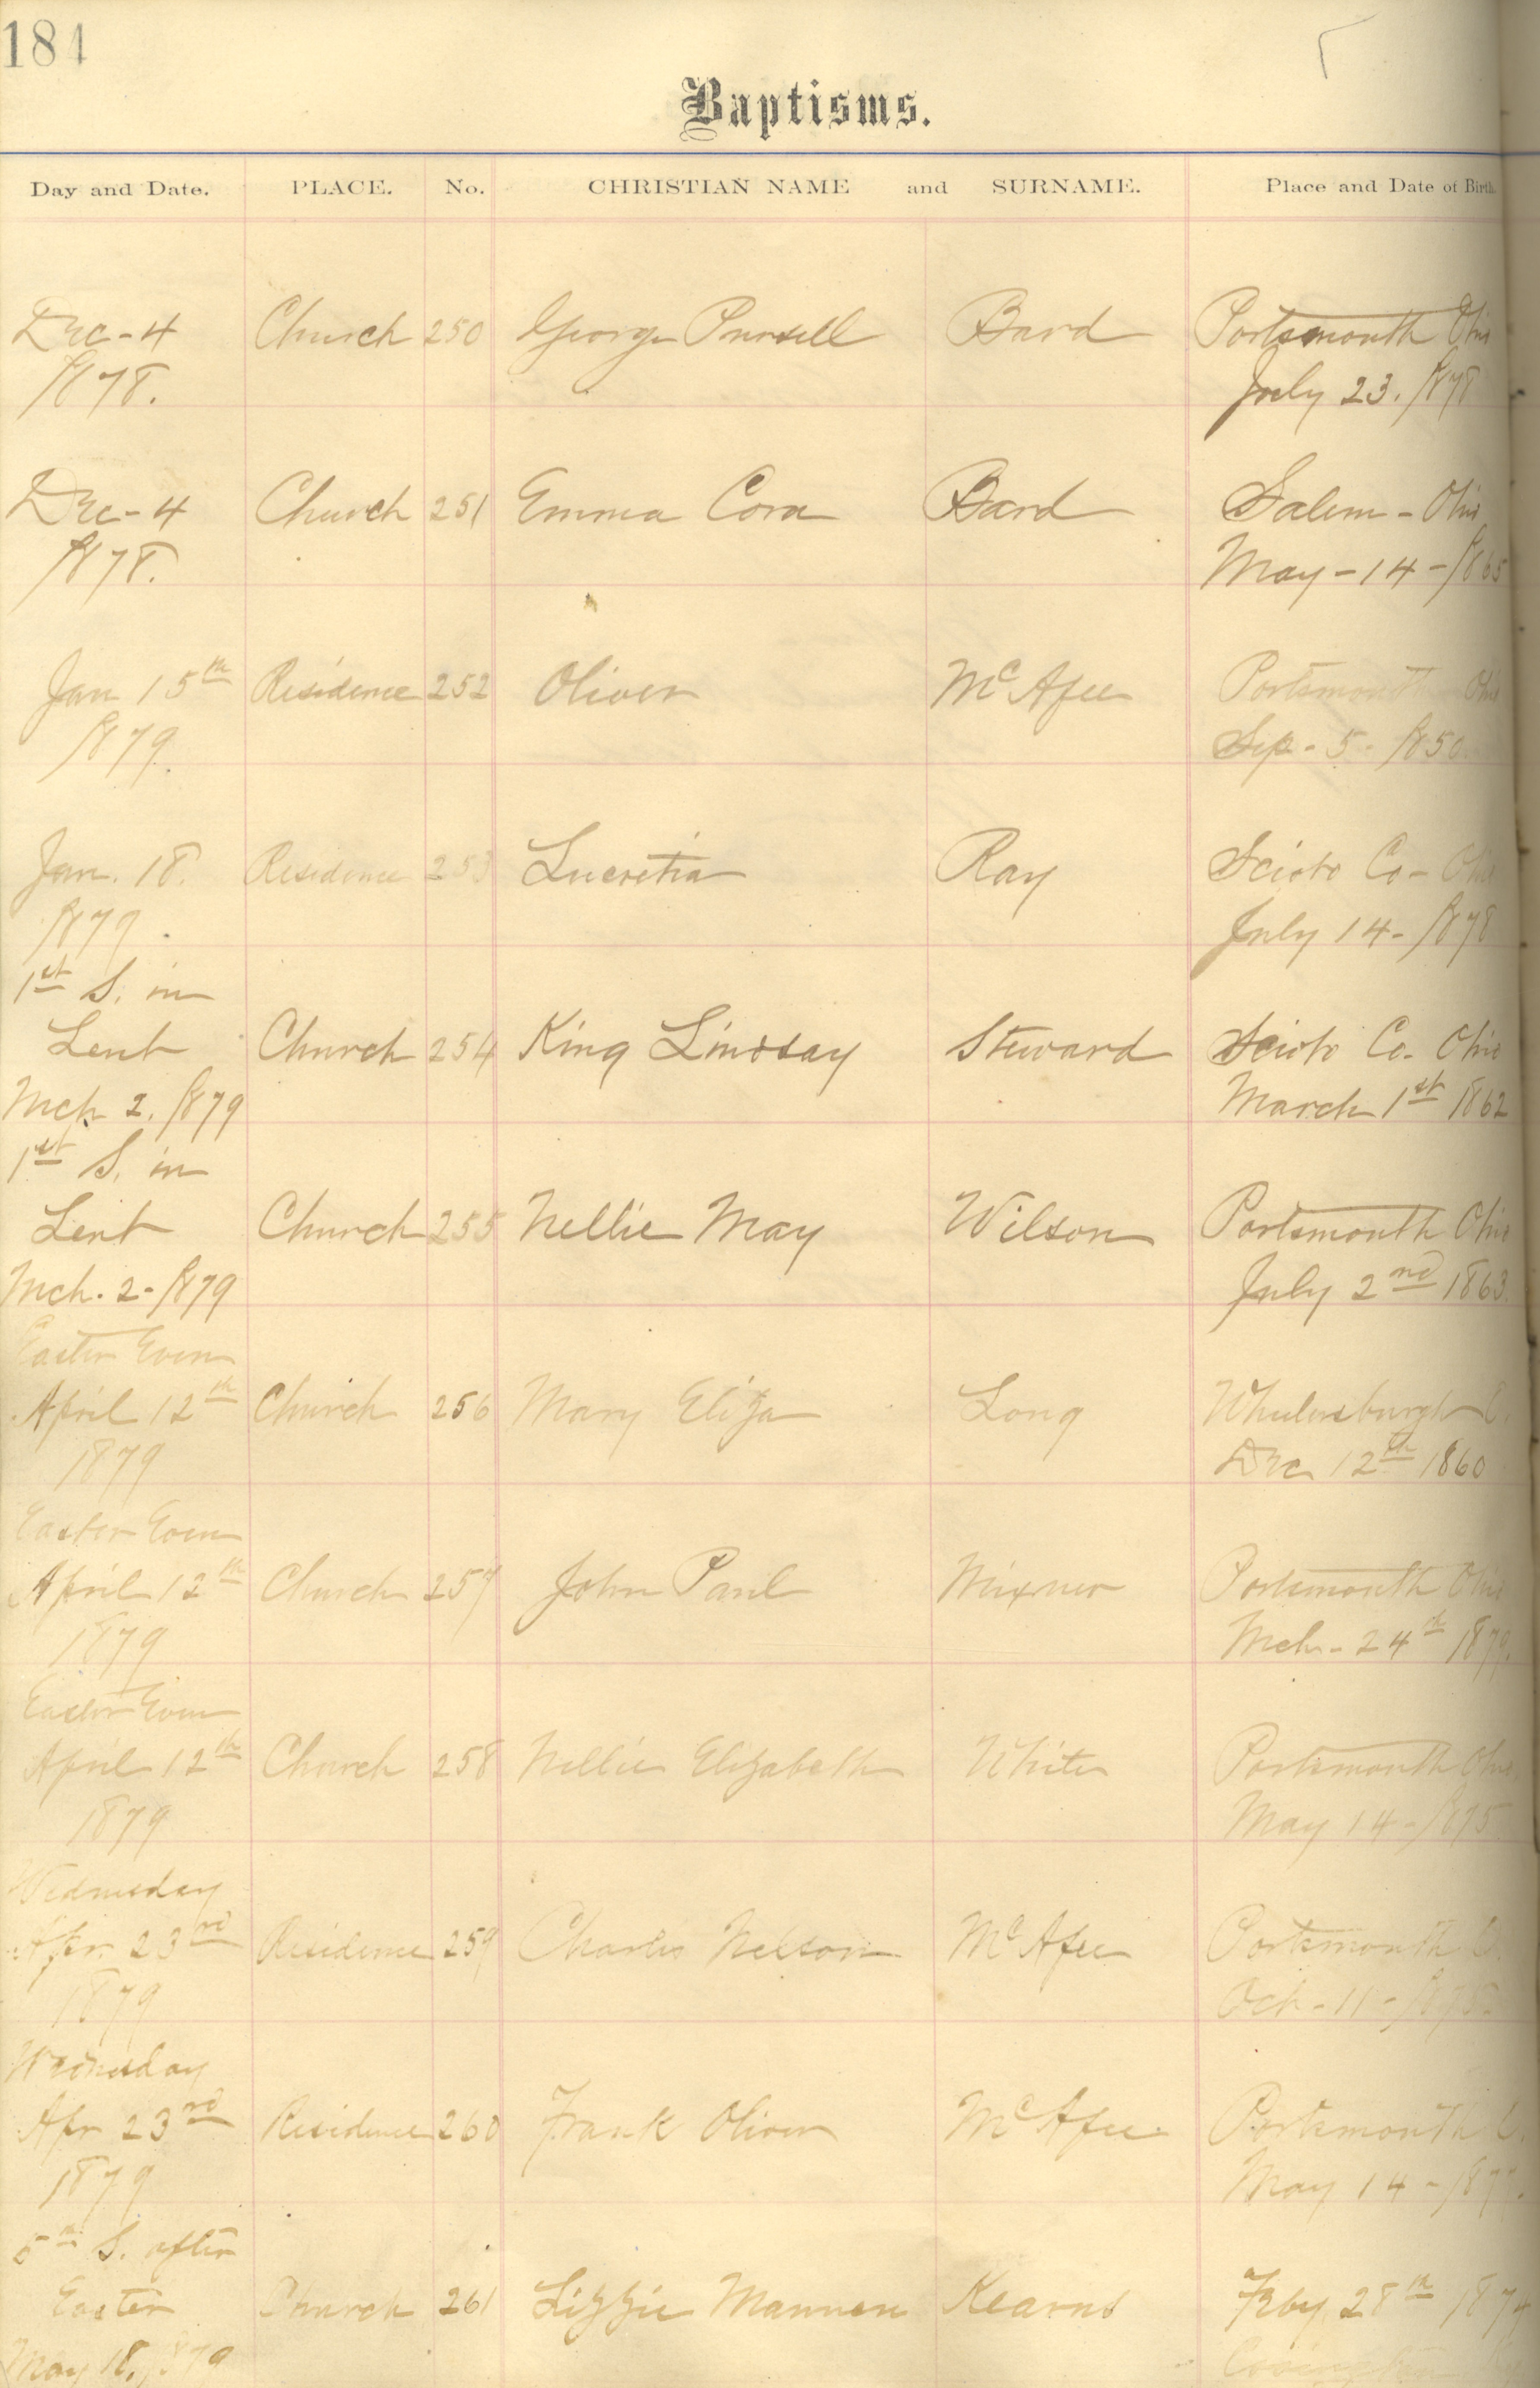 184
Baptisms.
Day and Date. PLACE. No. CHRISTIAN NAME and SURNAME. Place and Date of Birth.
Dec-4 Church 250 George Pursell Bard Portsmouth Ohio
1878. July 23. 1878
Dec-4 Church 251 Emma Cora Bard Salem - Ohio
1878. May-14-1865
Jan 15th Residence 252 Oliver McAfee Portsmouth Ohio
1879. Sep. 5. 1850.
Jan. 18. Residence 253 Lucretia Ray Scioto Co- Ohio
1879. July 14-1878
1st S. in
Lent Church 254 King Lindsay Steward Scioto Co. Ohio
Mch 2. 1879 March 1st 1862
1st S. in
Lent Church 255 Nellie May Wilson Portsmouth Ohio
Mch. 2-1879 July 2nd 1863.
Easter Even
April 12th Church 256 Mary Eliza Long Wheelersburgh O.
1879 Dec 12th 1860
Easter Even
April 12th Church 257 John Paul Mixner Portsmouth Ohio
1879 Mch-24th 1879.
Easter Even
April 12th Church 258 Nellie Elizabeth White Portsmouth Ohio.
1879 May 14-1875
Wednesday
Apr. 23rd Residence 259 Charles Nelson McAfee Portsmouth O.
1879 Oct-11-1875.
Wednesday
Apr 23rd Residence 260 Frank Oliver McAfee. Portsmouth O.
1879 May 14-
5th S. after
Easter Church 261 Lizzie Mannen Kearns Feby 28th
May 18, 1879 Covington